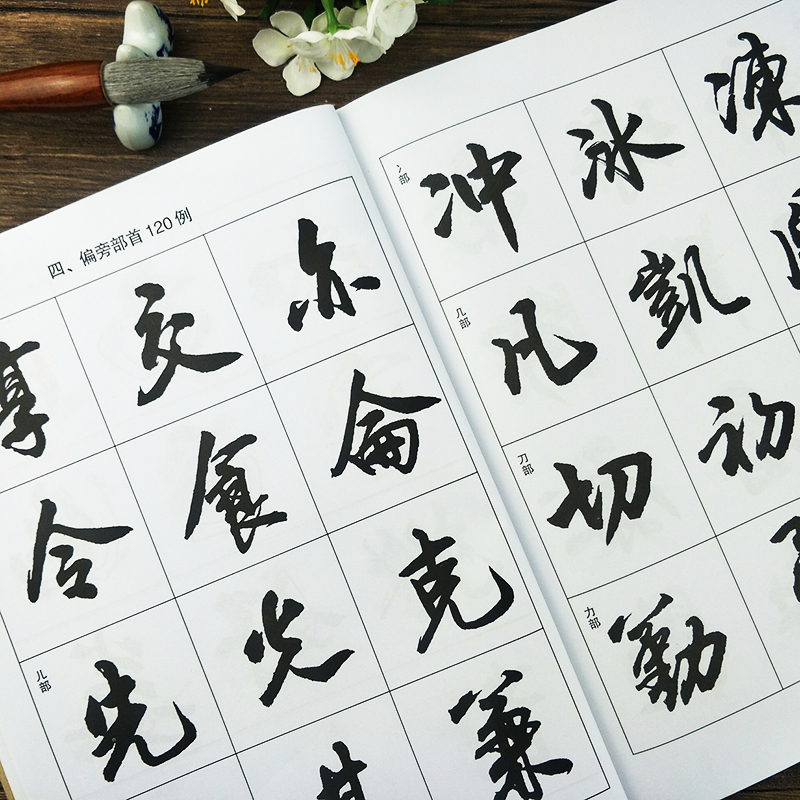 四、偏旁部首120例
享 交 亦
合 食 侖
儿部 先 光 克
兼
冫部 冲 冰 凍
几部 凡 凱
刀部 切 初
力部 勤